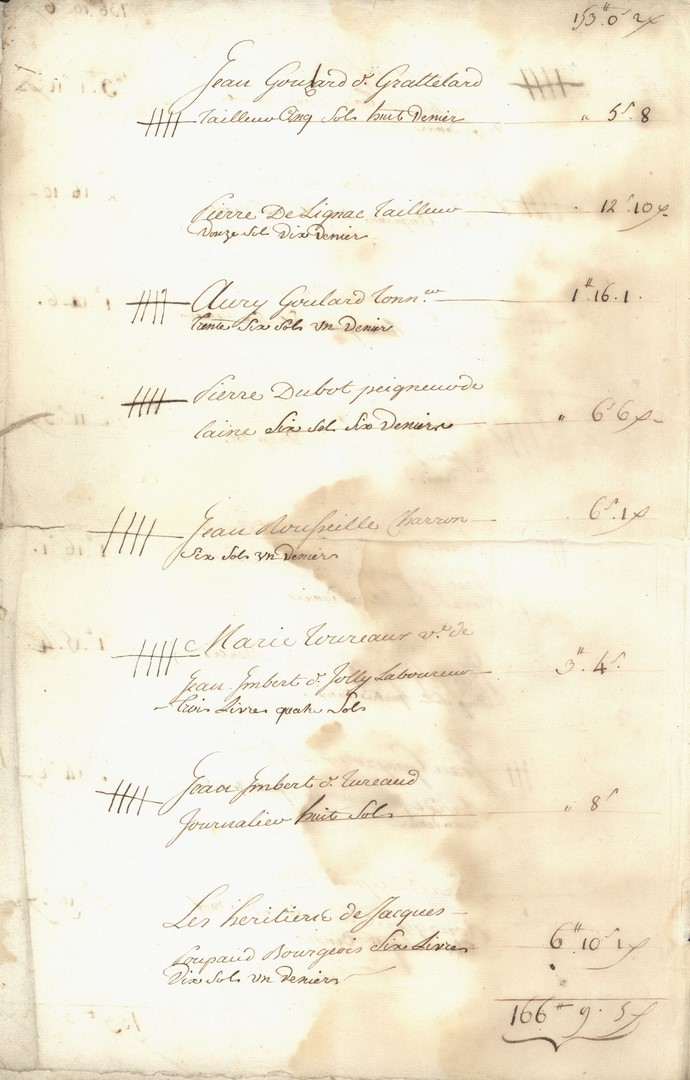 153.# 0.s 2.d
Jean Goulard d. Grattelard
tailleur Cinq Sols huit Denier " 5.s 8
Pierre De Lignac tailleur 12.s 10.d
Douze Sol Dix Denier
Aury Goulard tonn.er 1.# 16. 1.
trente Six Sols un Denier
Pierre Dubot peigneur de
laine Six Sol Six Deniers " 6.s 6.d
Jean Rousseille Charron 6.s 1.d
Six Sols un Deniers
Marie Toureaux v.e de
Jean Imbert d. Jolly Laboureur 3.# 4.s
trois Livres quatre Sols
Jean Imbert d. Tureaud
Journalier huit Sols " 8.s
Les heritiers de Jacques
Loupaud Bourgeois Six Livres 6.# 10.s 1.d
Dix Sols un Deniers
166.# 9. 5.d